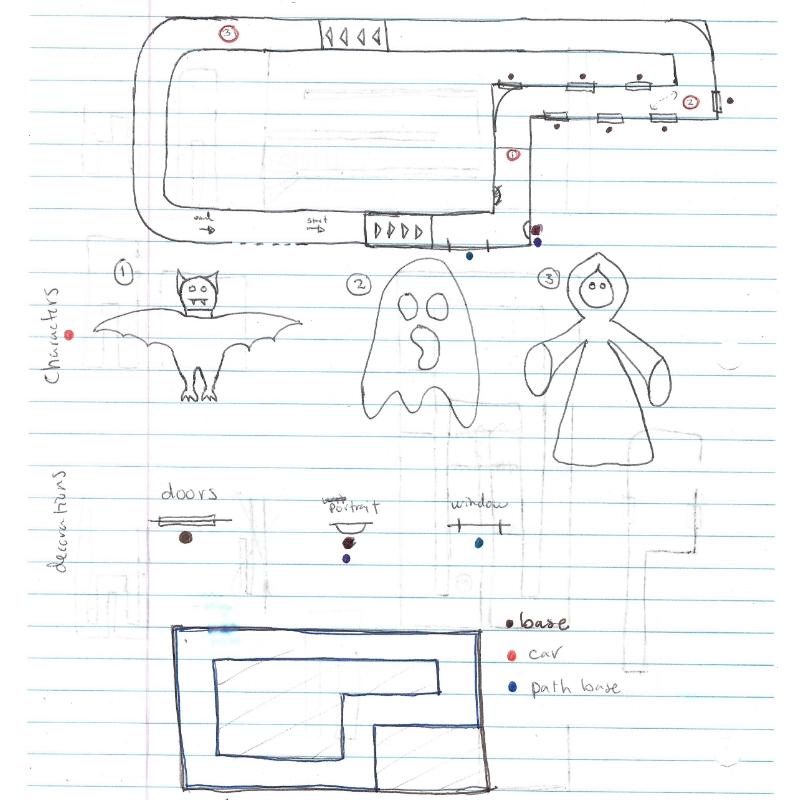 3
2
1
end
start
1
2
3
Characters
decorations
doors
portrait
window
base
car
path base